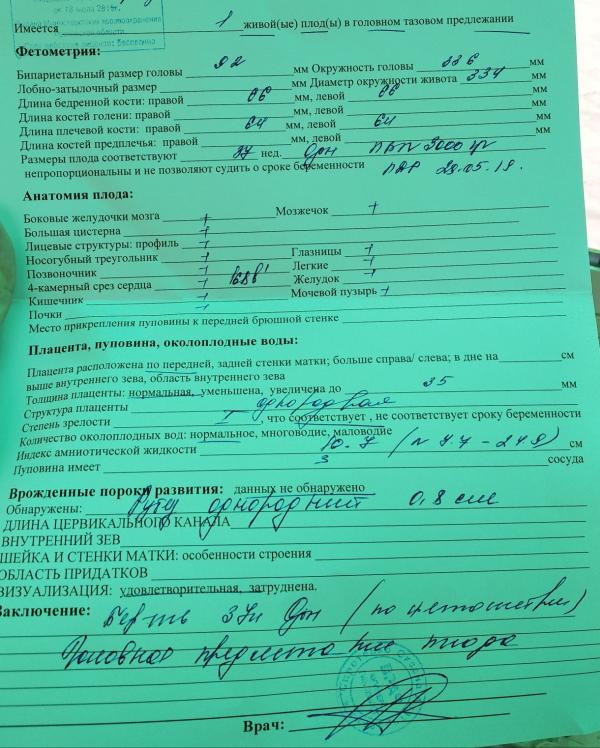 ок 18 июля 2018г.
Имеется 1 живой(ые) плод(ы) в головном тазовом предлежании
Фетометрия:
Бипариетальный размер головы 92 мм Окружность головы 336 мм
Лобно-затылочный размер мм Диаметр окружности живота 334 мм
Длина бедренной кости: правой 66 мм, левой 66 мм
Длина костей голени: правой мм, левой мм
Длина плечевой кости: правой 64 мм, левой 64 мм
Длина костей предплечья: правой мм, левой мм
Размеры плода соответствуют 37 нед. 0дн ПВП 3000 гр
непропорциональны и не позволяют судить о сроке беременности ПДР 29.05.19.
Анатомия плода:
Боковые желудочки мозга + Мозжечок +
Большая цистерна +
Лицевые структуры: профиль +
Носогубный треугольник + Глазницы +
Позвоночник + Легкие +
4-камерный срез сердца + Желудок +
Кишечник + Мочевой пузырь +
Почки +
Место прикрепления пуповины к передней брюшной стенке
Плацента, пуповина, околоплодные воды:
Плацента расположена по передней, задней стенки матки; больше справа/ слева; в дне на см
выше внутреннего зева, область внутреннего зева
Толщина плаценты: нормальная, уменьшена, увеличена до 35 мм
Структура плаценты однородная
Степень зрелости I, что соответствует , не соответствует сроку беременности
Количество околоплодных вод: нормальное, многоводие, маловодие
Индекс амниотической жидкости 10.7 (N 7.7 - 24.9) см
Пуповина имеет 3 сосуда
Врожденные пороки развития: данных не обнаружено
Обнаружены: однородный 0,8 см
ДЛИНА ЦЕРВИКАЛЬНОГО КАНАЛА
ВНУТРЕННИЙ ЗЕВ
ШЕЙКА И СТЕНКИ МАТКИ: особенности строения
ОБЛАСТЬ ПРИДАТКОВ
ВИЗУАЛИЗАЦИЯ: удовлетворительная, затруднена.
Заключение: Бер-ть 37н 0дн (по фетометрии)
Головное предлежание плода
Врач: